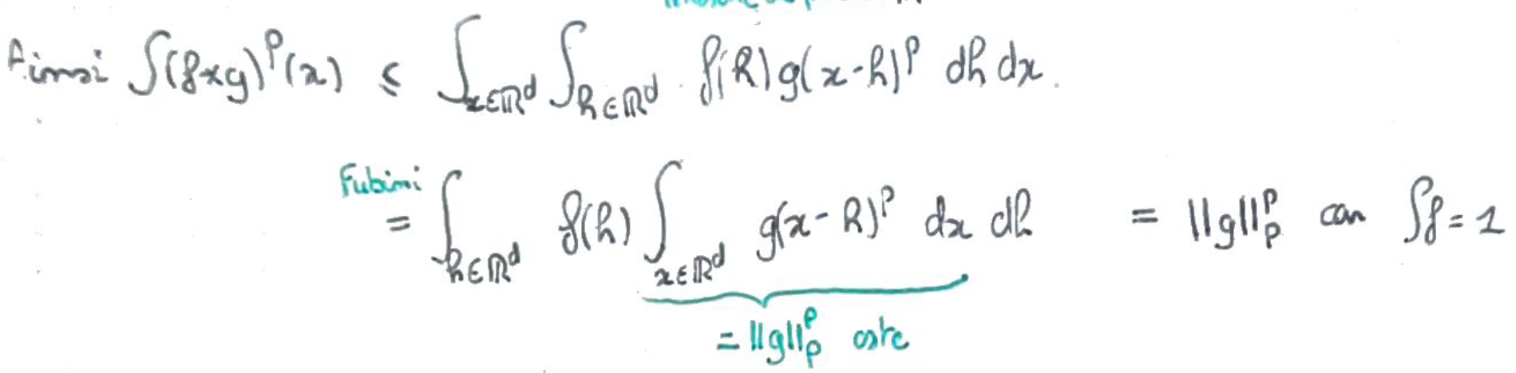 Ainsi ∫(f*g)^p(x) ≤ ∫_{x∈ℝ^d} ∫_{h∈ℝ^d} f(h)g(x-h)^p dh dx.
Fubini
= ∫_{h∈ℝ^d} f(h) ∫_{x∈ℝ^d} g(x-h)^p dx dh = ||g||_p^p car ∫f=1
= ||g||_p^p cste